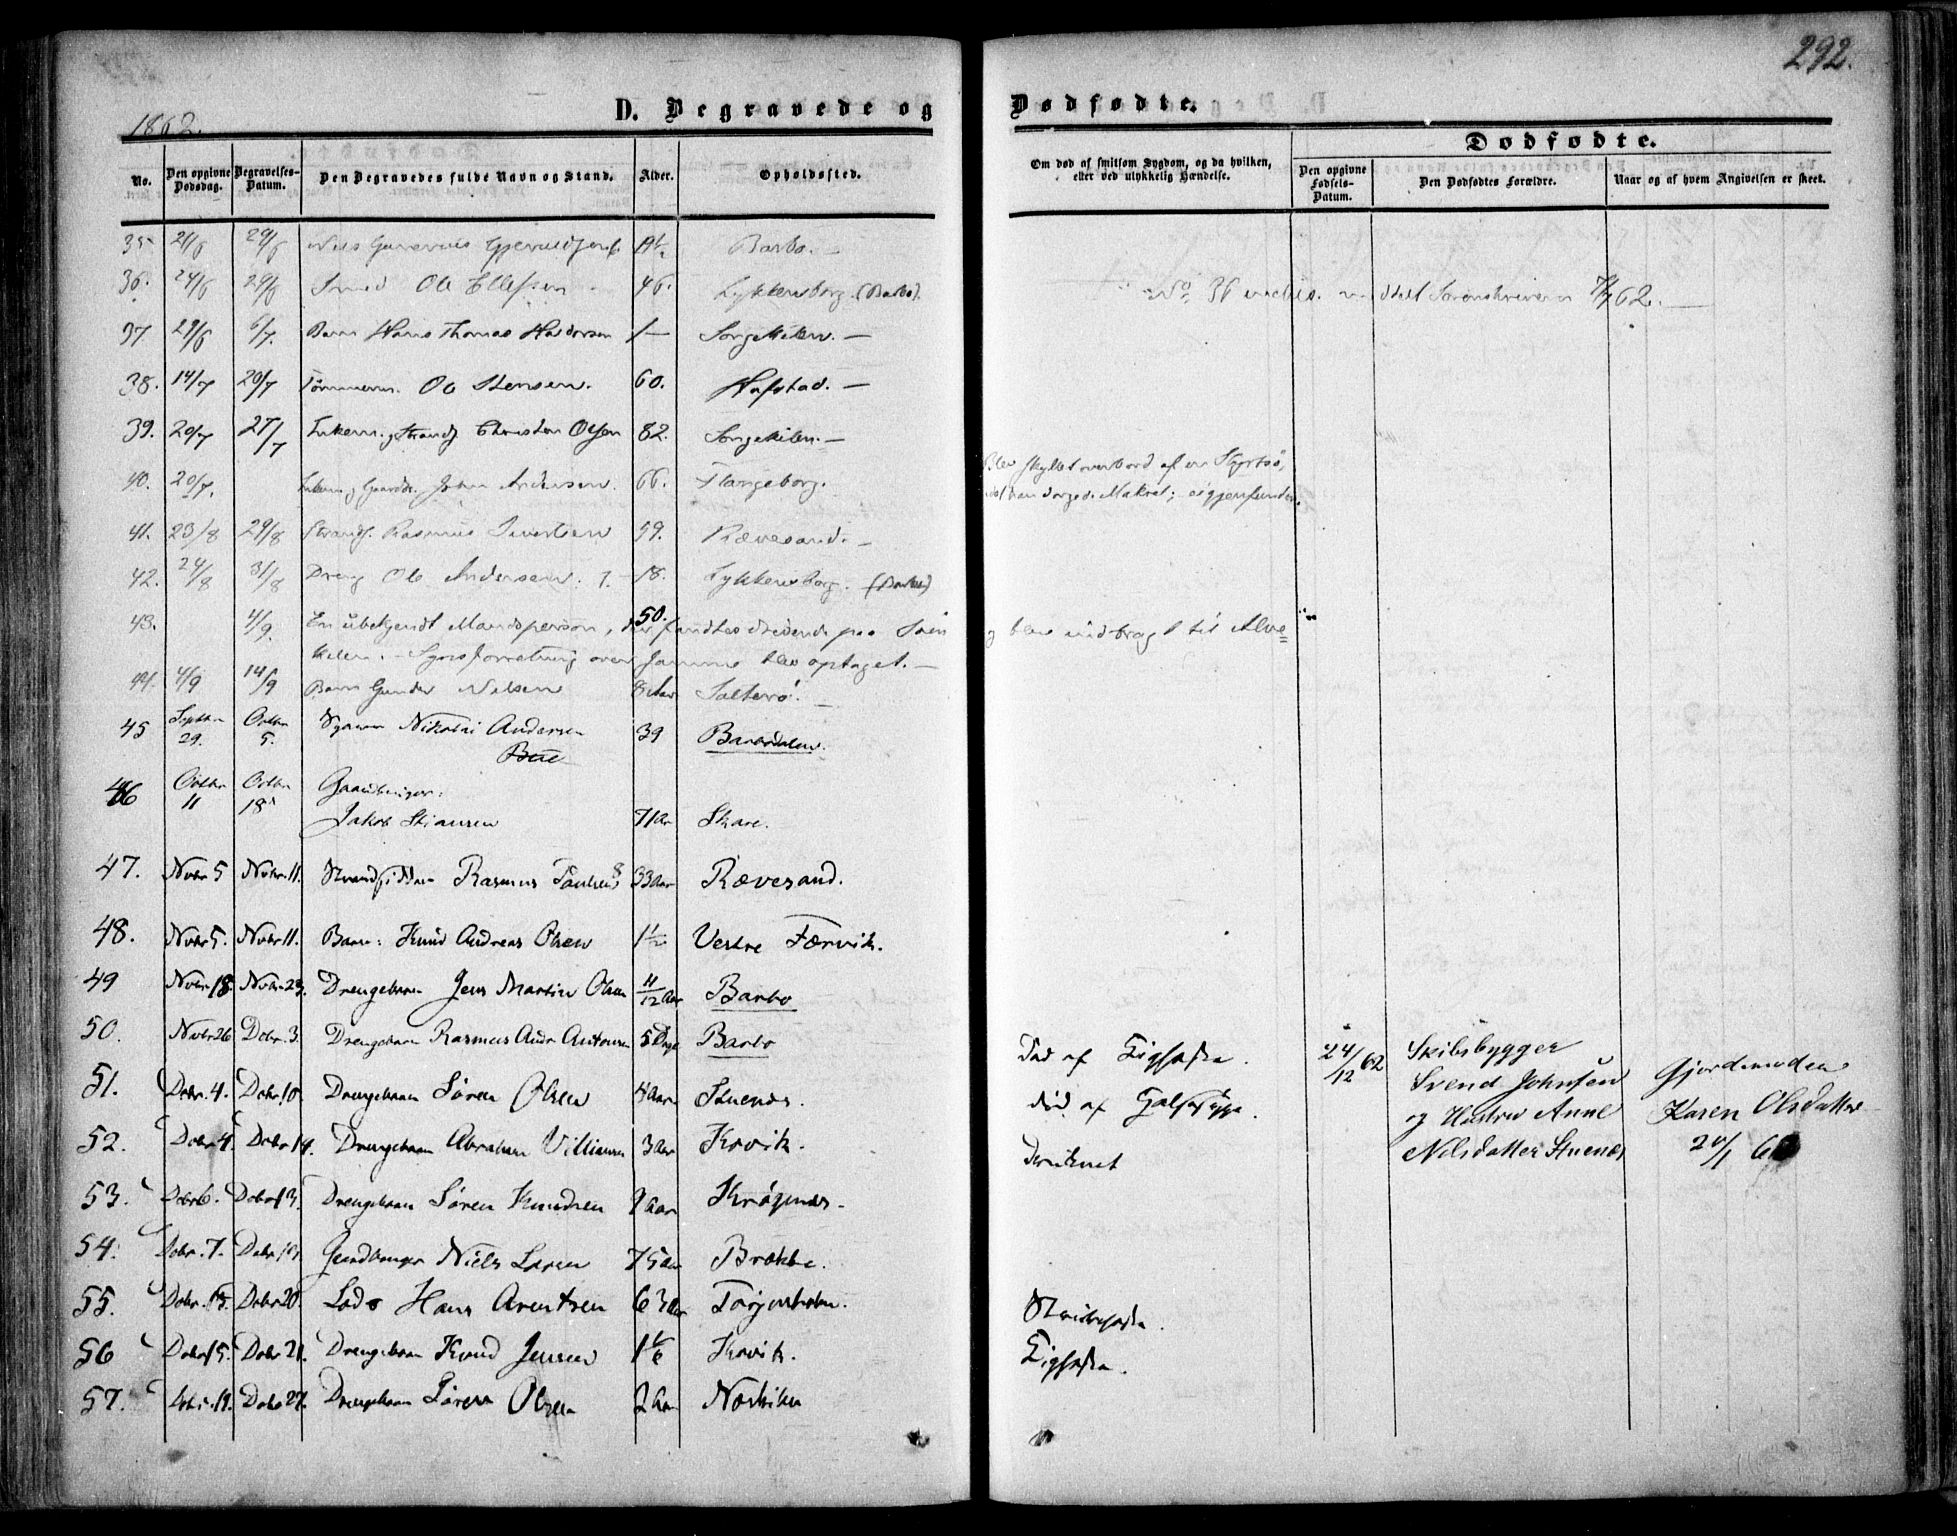 292.
1862.
D. Begravede og
Dødfødte.
No.
Den opgivne Dødsdag.
Begravelses-Datum.
Den Begravedes fulde Navn og Stand.
Alder.
Opholdssted.
Om død af smitsom Sygdom, og da hvilken, eller ved ulykkelig Hændelse.
Dødfødte.
Den opgivne Fødsels-Datum.
Den Dødfødtes Forældre.
Naar og af hvem Angivelsen er skeet.
35 21/6 29/6 Nils Barbo.
36. 24/6 29/6 Smed Ole Ellefsen 46. Lykkensborg. (Barbo).
No. 36 Sorenskriveren 7/7 62.
37 29/6 6/7. Barn Hans Thomas Haldorsen 1 — Songekilen. —
38. 14/7 20/7 Tømmerm. Ole Stensen. 60. Hafstad. —
39. 20/7 27/7 Enkem. g. Strands. Christen Olsen 82. Songekilen. —
40. 20/7. Enkem. g. Gaardbr. John Andersen. 66. Flangeborg.
Blev skyllet overbord af en Styrtsø,
idet han dorgede Makrel; ei gjenfunden.
41. 23/8 29/8 Strands. Rasmus Sivertsen 59. Rævesand. —
42. 24/8 31/8 Dreng Ole Andersen. 18. Lykkensborg. (Barbo)
43. 4/9. En ubekjendt Mandsperson, der fandtes drivende paa Søen 50.
og blev indbragt til Alve=
kilen. — Synsforretning over samme blev optaget. —
44. 4/9 14/9 Barn Gunder Nilsen 8 Aar Salterø. —
45 Septbr 29. Octbr 5. Nikolai Andersen 39 Barbodalen.
Bøe
46 Octbr 11 Octbr 18 Gaardbruger:
Jakob Stiansen 71 Aar Skare.
47. Novbr 5 Novbr. 11. Strandsidder Rasmus Paulsen 33 Aar Rævesand.
48. Novbr 5. Novbr 11. Barn: Knud Andreas Olsen 1 1/2 Vestre Færvik.
49 Novbr 18. Novbr 23. Drengebarn Jens Martin Olsen 11/12 Aar Barbo
50. Novbr 26 Decbr. 3. Drengebarn Rasmus Andr Antonsen 5 Dage Barbo
51. Decbr. 4. Decbr. 10. Drengebarn Søren Olsen 4 Aar Stuenæs.
Død af
24/12 62
Skibsbygger
Svend Johnsen
og Hustru Anne
Nilsdatter Stuenæs
Gjordemoder
Karen Olsdatter
24/1 63
52. Decbr. 4. Decbr 14. Drengebarn Abraham Villiamsen 3 Aar Krovik.
død af
Druknet
53. Decbr 6. Decbr 13. Drengebarn Søren Knudsen 9 Aar Krøgenæs.
54. Decbr. 7. Decbr 14. Gaardbruger Niels Larsen 75 Aar Brække.
55. Decbr. 15. Decbr 20. Lods Hans Arentsen 63 Aar Torjusholm.
56 Decbr 15. Decbr 21. Drengebarn Knud Jensen 1 1/6 Krovik.
57. Decbr. 19. Decbr 27. Drengebarn Søren Olsen 2 Aar